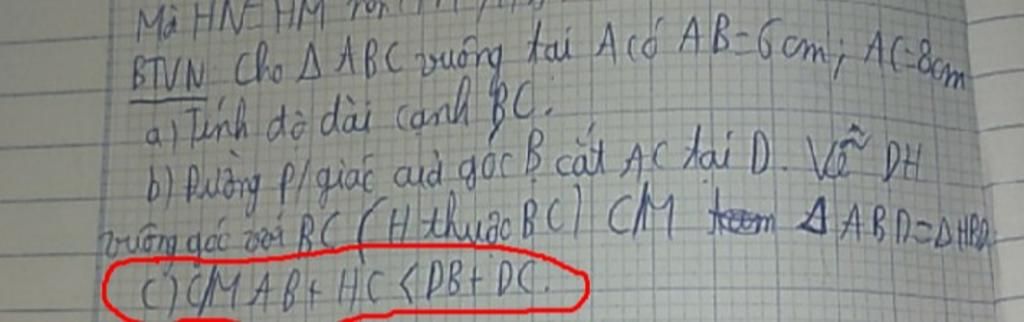 Mà HN=HM
BTVN Cho Δ ABC vuông tại A có AB=6cm; AC=8cm
a) Tính độ dài cạnh BC.
b) Đường p/giác của góc B cắt AC tại D. Vẽ DH
vuông góc với BC (H thuộc BC) CM Δ ABD=ΔHBD
c) C/M AB+ HC <DB+ DC.